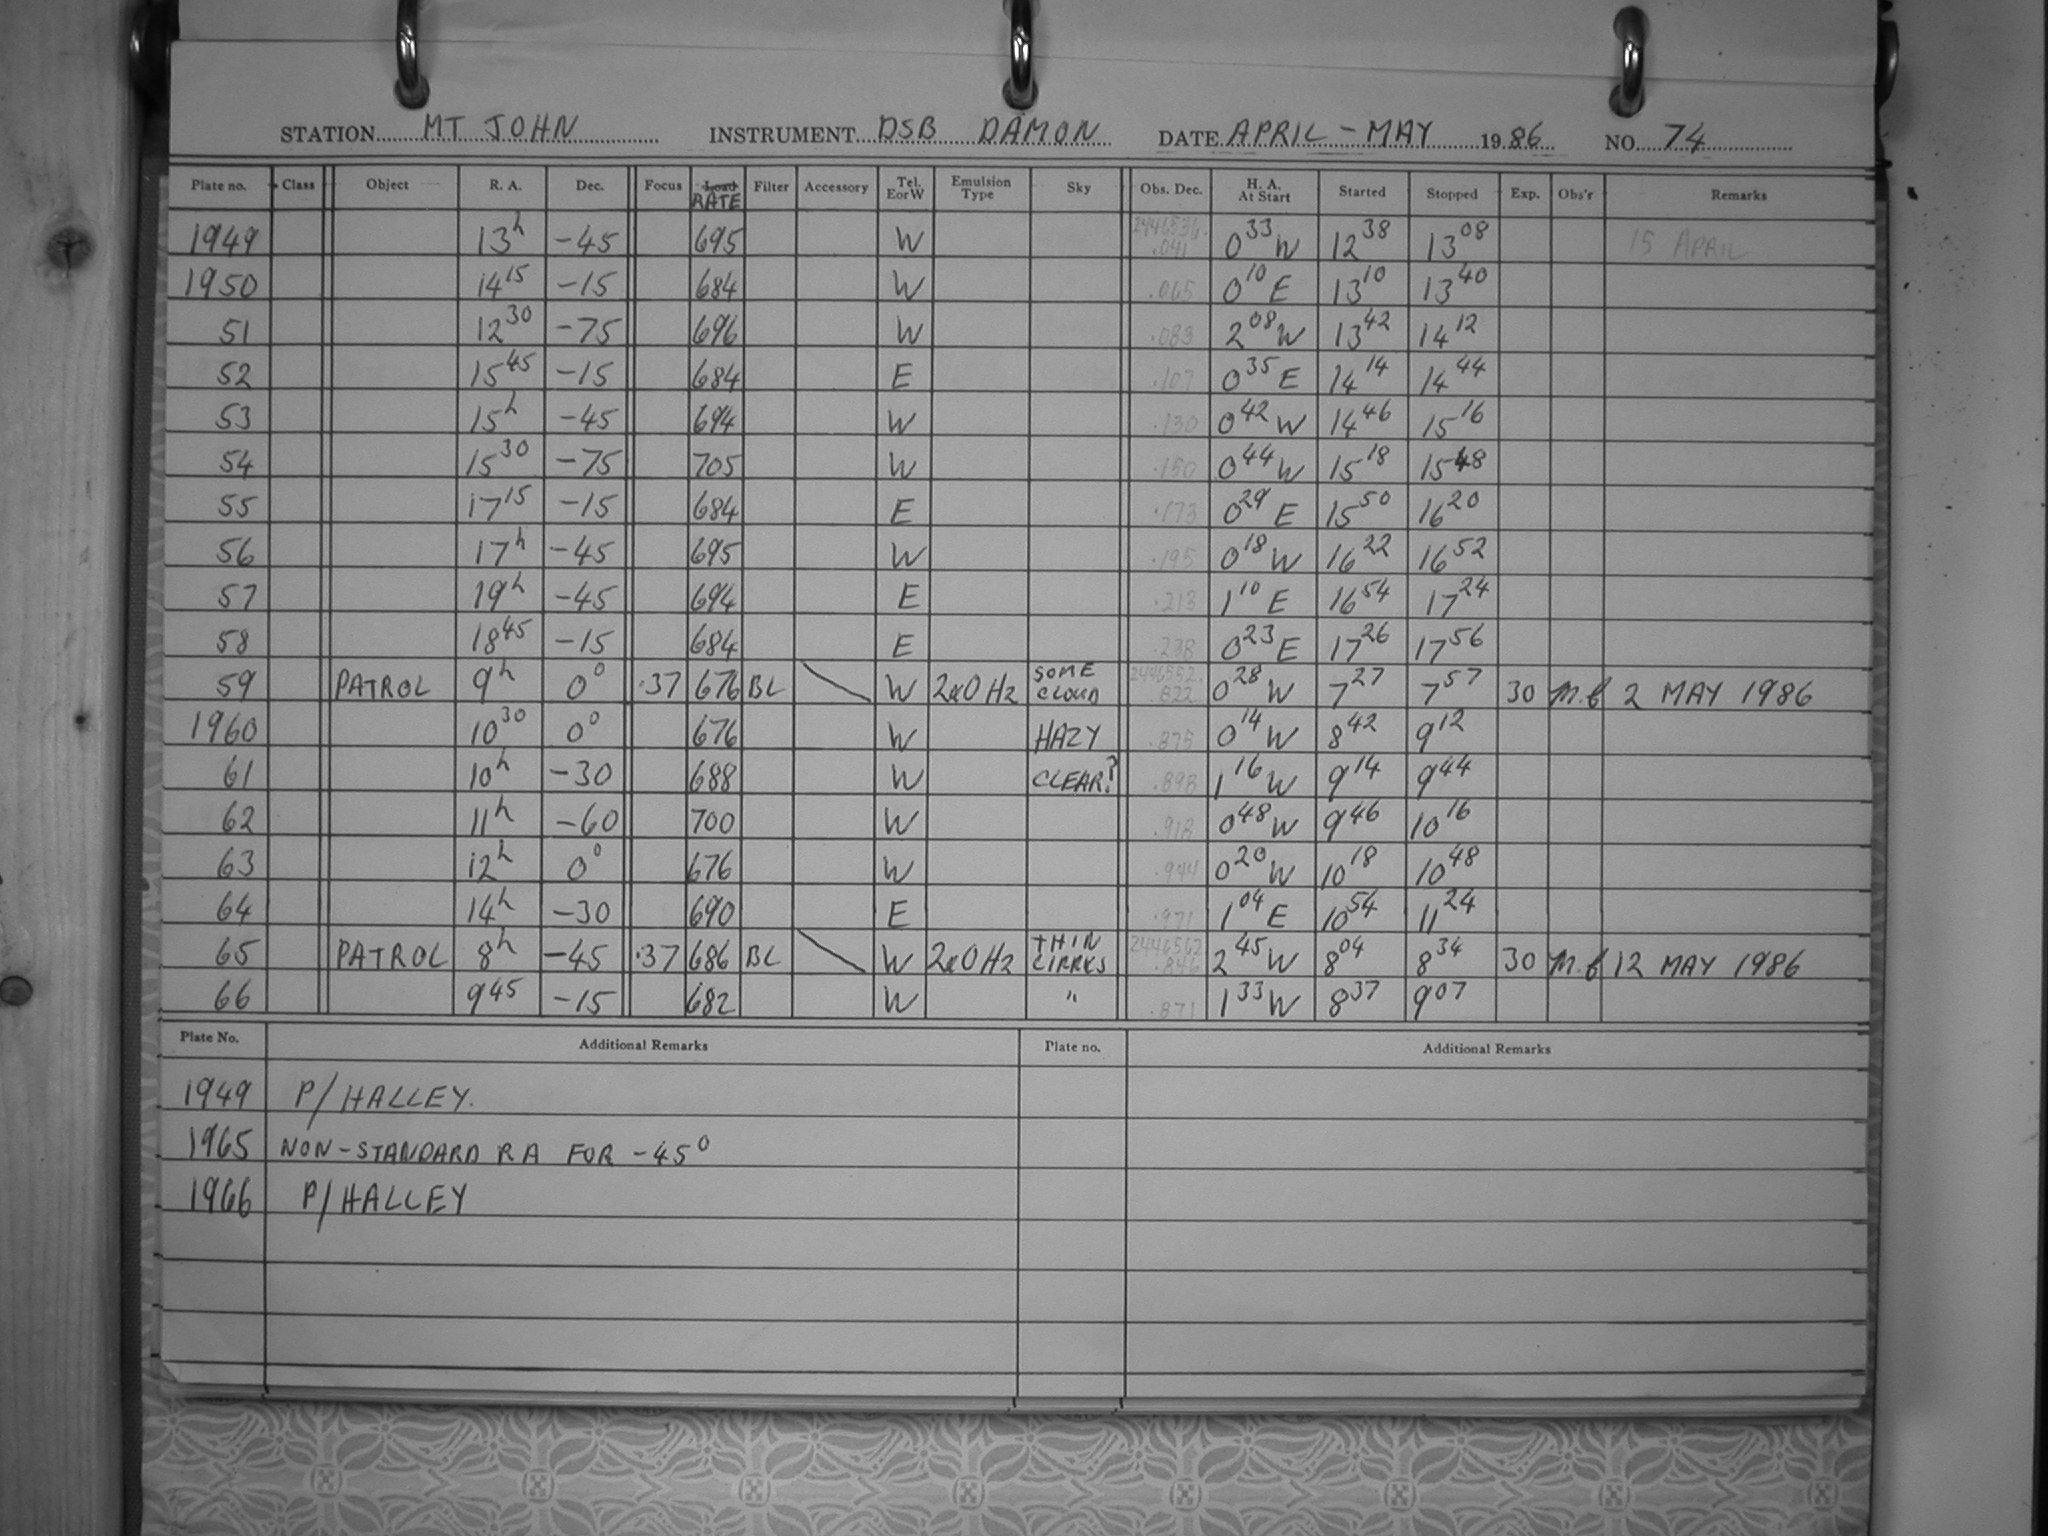 STATION MT JOHN INSTRUMENT DSB DAMON DATE APRIL - MAY 1986 NO. 74
Plate no. Class Object R. A. Dec. Focus Load RATE Filter Accessory Tel. E or W Emulsion Type Sky Obs. Dec. H. A. At Start Started Stopped Exp. Obs'r Remarks
1949 13h -45 695 W 2446536. .041 0 33 W 12 38 13 08 15 APRIL
1950 14 15 -15 684 W .065 0 10 E 13 10 13 40
51 12 30 -75 696 W .083 2 08 W 13 42 14 12
52 15 45 -15 684 E .107 0 35 E 14 14 14 44
53 15h -45 694 W .130 0 42 W 14 46 15 16
54 15 30 -75 705 W .150 0 44 W 15 18 15 48
55 17 15 -15 684 E .173 0 29 E 15 50 16 20
56 17h -45 695 W .195 0 18 W 16 22 16 52
57 19h -45 694 E .213 1 10 E 16 54 17 24
58 18 45 -15 684 E .238 0 23 E 17 26 17 56
59 PATROL 9h 0° .37 676 BL W 2aO H2 SOME CLOUD 2446552. .822 0 28 W 7 27 7 57 30 2 MAY 1986
1960 10 30 0° 676 W HAZY .875 0 14 W 8 42 9 12
61 10h -30 688 W CLEAR? .898 1 16 W 9 14 9 44
62 11h -60 700 W .918 0 48 W 9 46 10 16
63 12h 0° 676 W .944 0 20 W 10 18 10 48
64 14h -30 690 E .971 1 04 E 10 54 11 24
65 PATROL 8h -45 .37 686 BL W 2aO H2 THIN CIRRUS 2446562 .846 2 45 W 8 04 8 34 30 12 MAY 1986
66 9 45 -15 682 W " .871 1 33 W 8 37 9 07
Plate No. Additional Remarks Plate no. Additional Remarks
1949 P/HALLEY.
1965 NON-STANDARD RA FOR -45°
1966 P/HALLEY